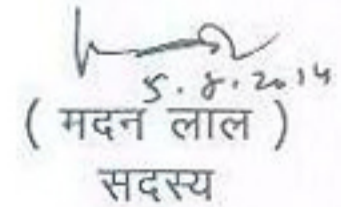 5.8.2014
( मदन लाल )
सदस्य